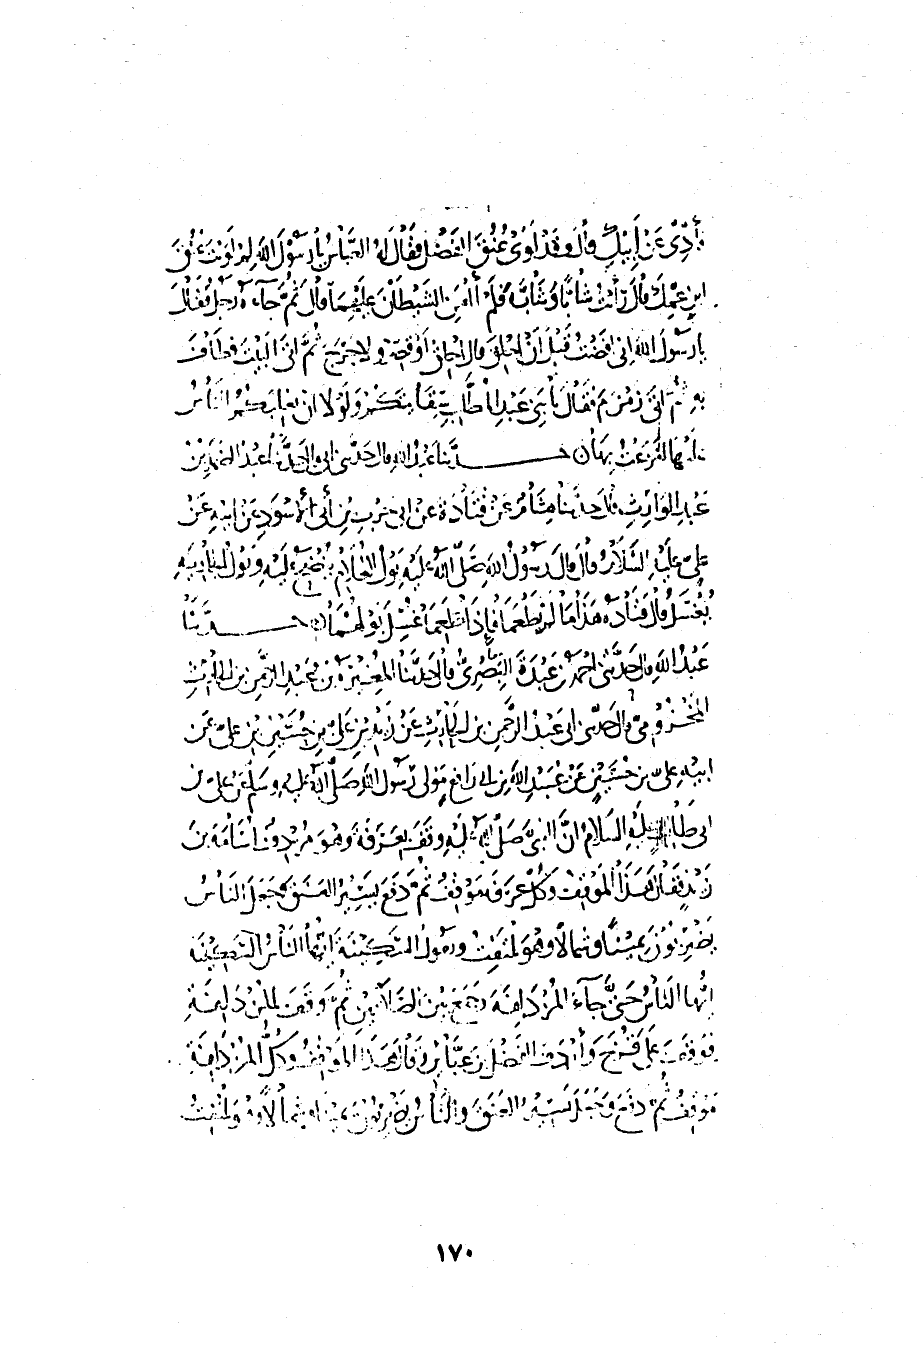 فأدّى عن ابيك قال وقد لوى عنق الفضل فقال له العباس يا رسول الله لم لويت عنق
ابن عمك قال رأيت شابّا وشابّة فلم أأمن الشيطان عليهما قال ثم جآءه رجل فقال
يا رسول الله انى افضت قبل ان احلق قال احلق او قصّر ولا حرج ثم اتى البيت فطاف
به ثم اتى زمزم فقال يا بنى عبد المطّلب سقايتكم ولولا ان يغلبكم الناس
عليها لنزعت بها حدّثنا عبد الله قال حدّثنى ابى قال حدّثنا عبد الصمد بن
عبد الوارث قال حدثنا هشام عن قتادة عن ابى حرب بن أبى الاسود عن ابيه عن
على عليه السلام قال قال رسول الله صلّى الله عليه بول الغلام ينضح عليه وبول الجارية
يغسل قال قتاده هذا ما لم يطعما فإذا طعما غسل بولهما حدّثنا
عبد الله قال حدّثنى احمد بن عبدة البصرى قال حدّثنا المغيرة بن عبد الرحمن بن الحارث
المخزومى قال حدّثنى ابى عبد الرحمن بن الحارث عن زيد بن علىّ بن حسين بن علىّ عن
ابيه علىّ بن حسين عن عبيد الله بن ابى رافع مولى رسول الله صلّى الله عليه وسلم عن علىّ بن
ابى طالب عليه السلام انّ النبىّ صلّى الله عليه وقف بعرفة وهو مردف اسامة بن
زيد فقال هذا الموقف وكلّ عرفة موقف ثم دفع يسير العنق وجعل الناس
يضربون يمينا وشمالا وهو يلتفت ويقول السكينة ايّها الناس السكينة
ايّها الناس حتّى جآء المزدلفة وجمع بين الصلاتين ثم وقف بالمزدلفة
فوقف على قزح وأردف الفضل بن عبّاس وقال هذا الموقف وكلّ المزدلفة
موقف ثم دفع وجعل يسير العنق والناس يضربون يمينا وشمالا وهو يلتفت
١٧٠